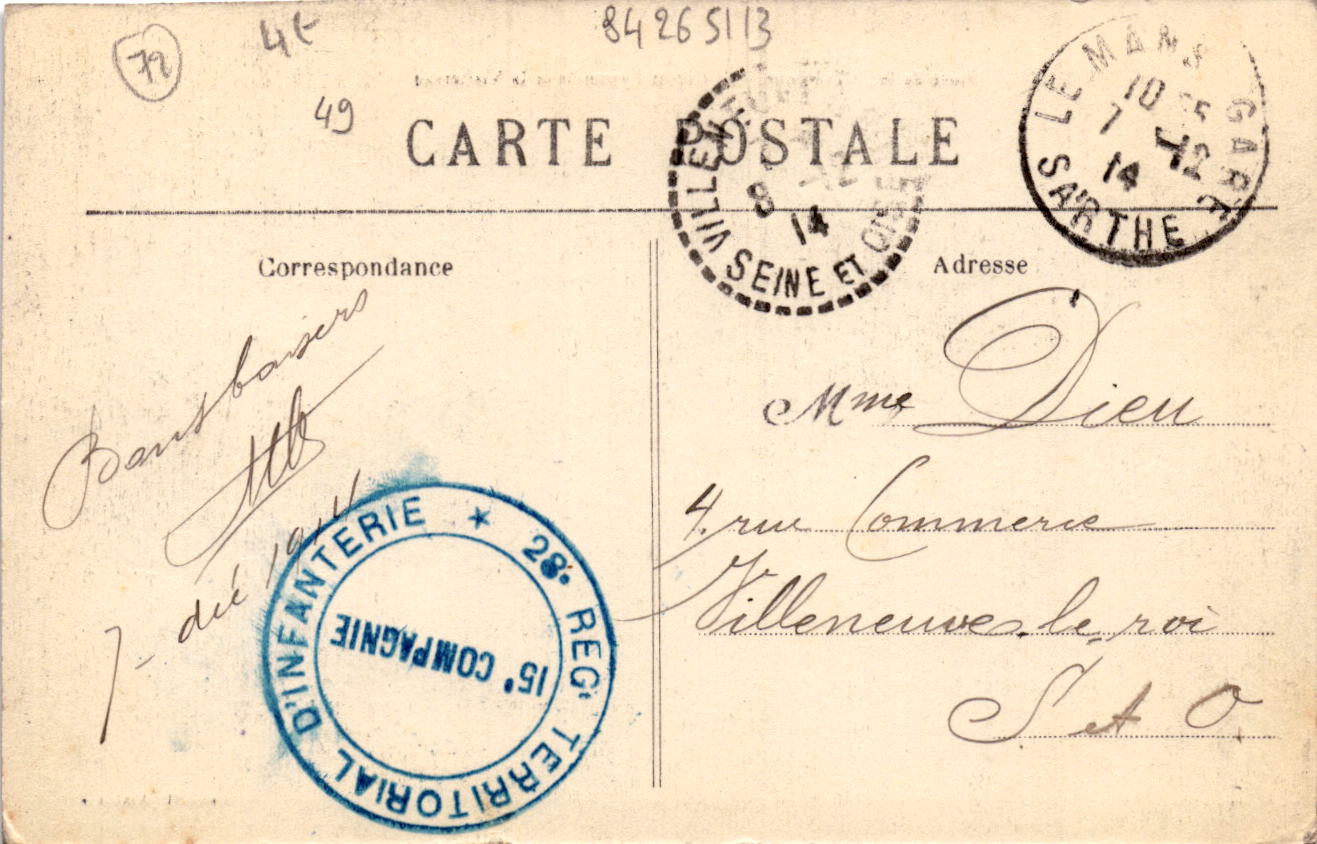 72
4€
84265113
49
CARTE POSTALE
LE MANS GARE
10 25
7 - 12
14
SARTHE
VILLENEUVE
8 - 12
14
SEINE ET OISE
Correspondance
Adresse
Bons baisers
7 - déc 1914
28e REGt TERRITORIAL D'INFANTERIE ★
15e COMPAGNIE
Mme Dieu
4. rue Commerce
Villeneuve-le-roi
S et O